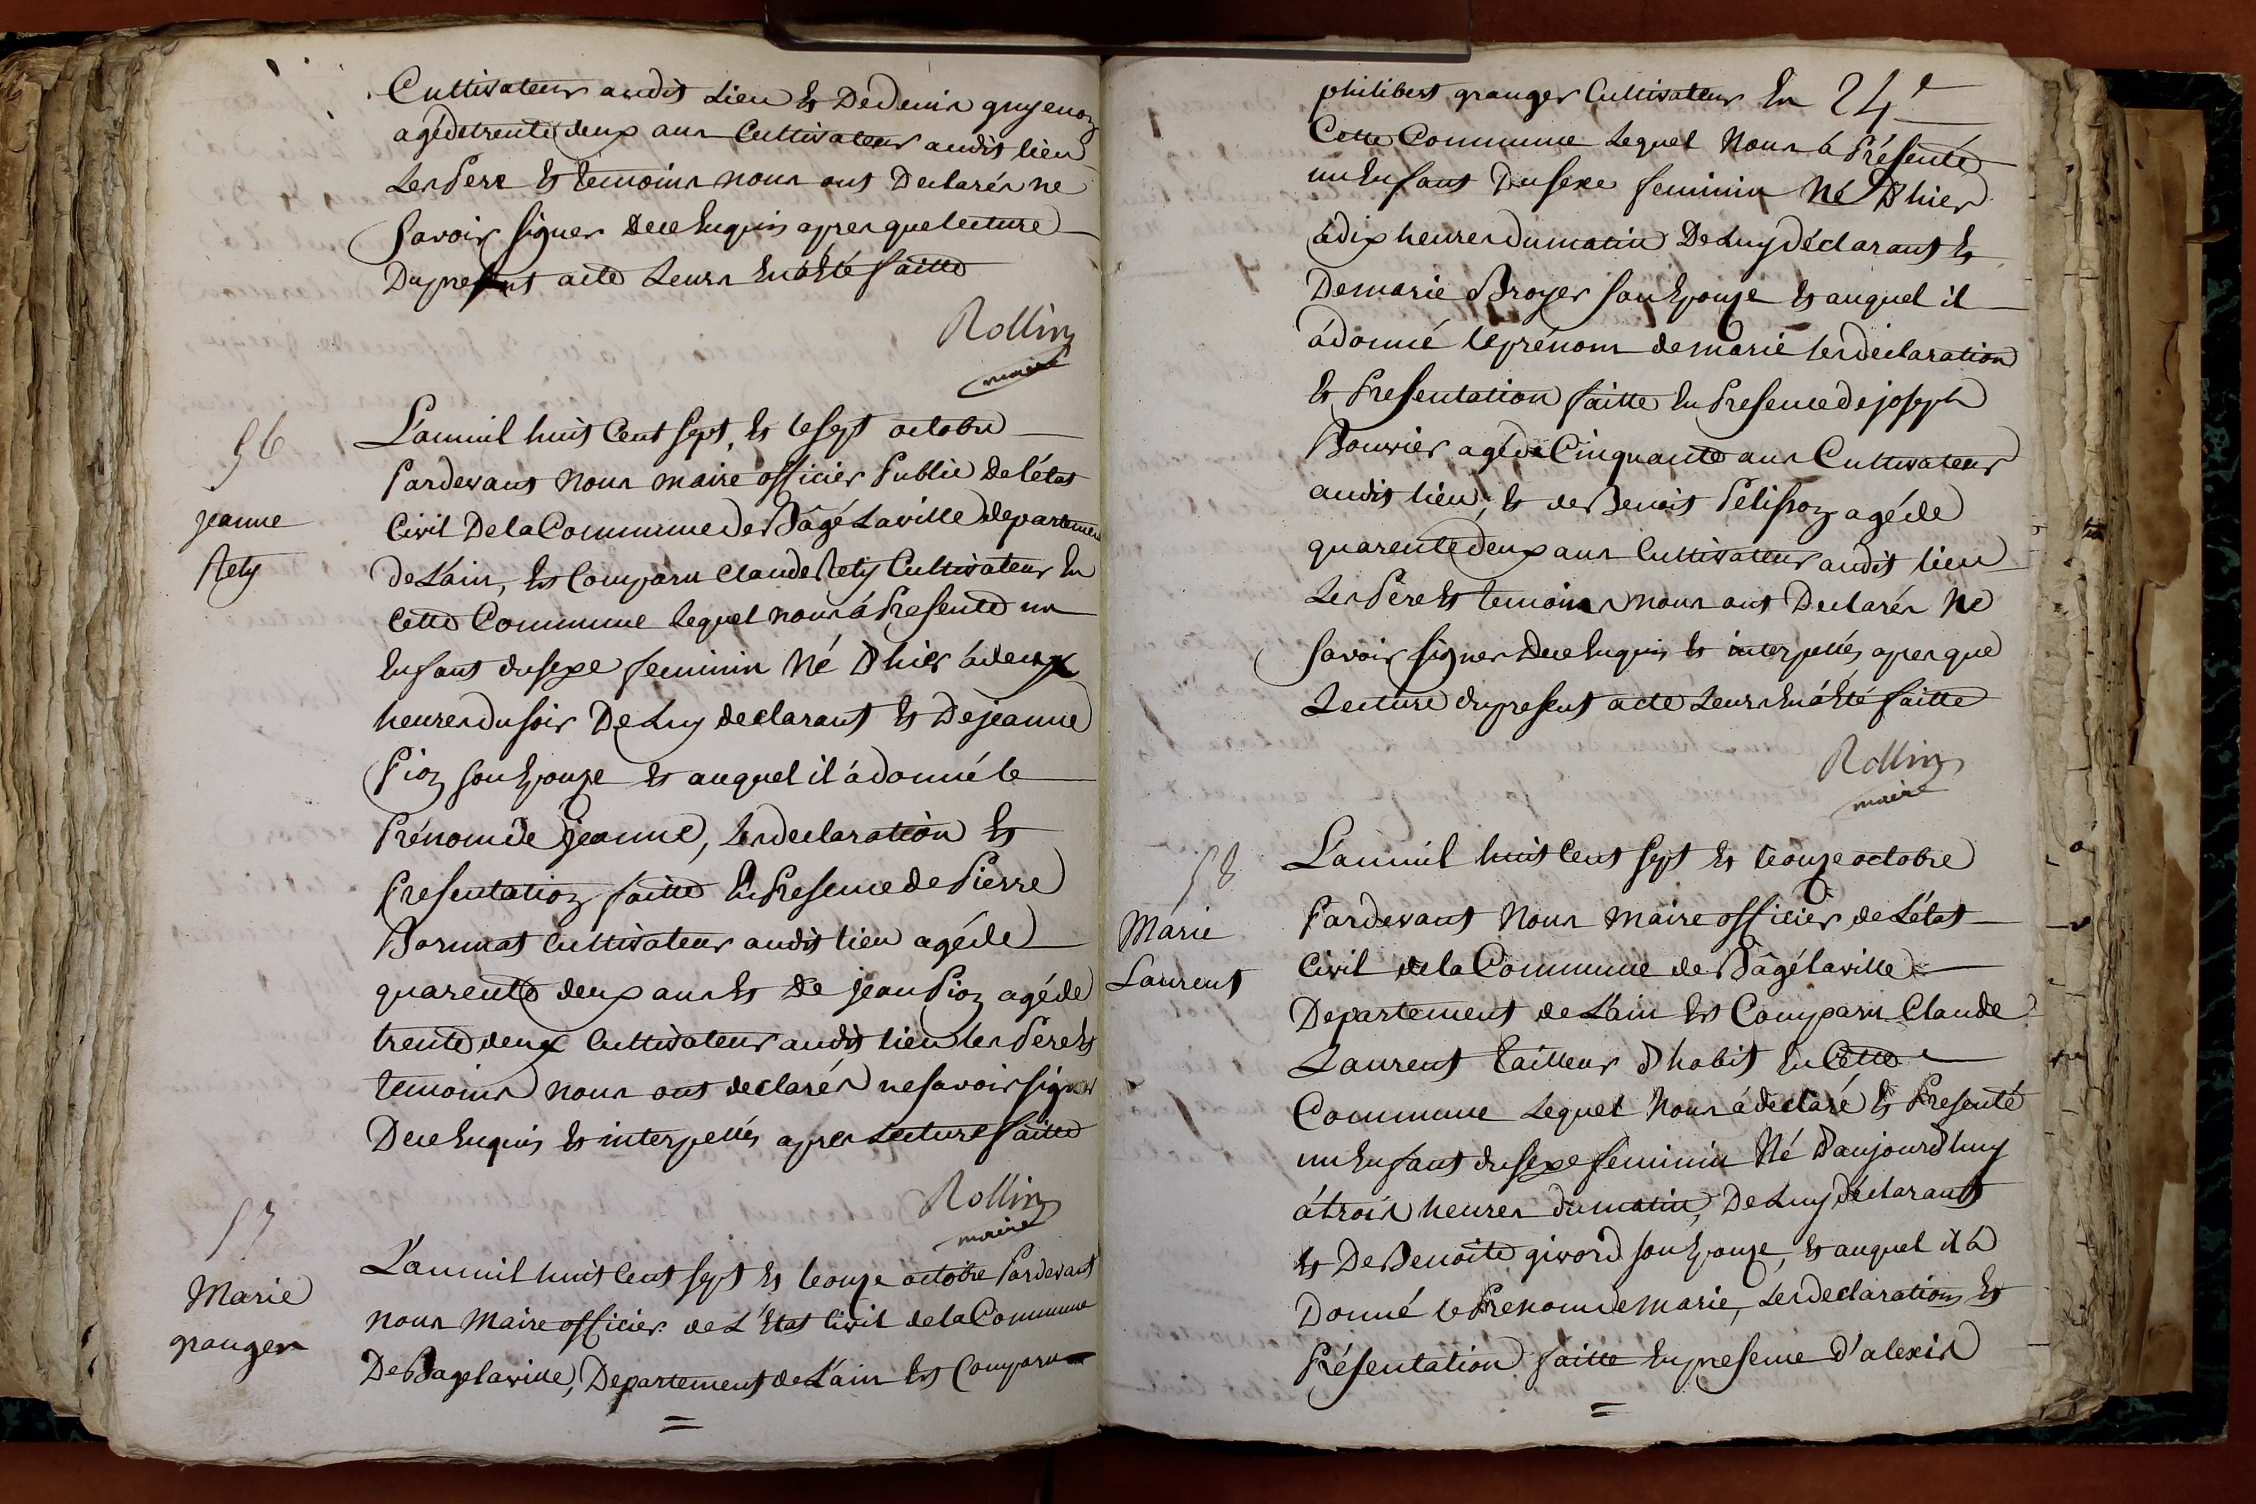 Cultivateur audit Lieu et De denis guyenon
agé de trente deux ans Cultivateur audit lieu
Les Pere et temoins nous ont Declarés ne
Savoir signer de ce Enquis apres que lecture
Du present acte Leurs En à Eté faitte
Rollin
maire
56
jeanne
Rety
L'an mil huit Cent Sept, et le sept octobre
Pardevant Nous maire officier Public De l'état
Civil De la Commune de Bâgé Laville departement
de L'ain, Est Comparu Claude Rety Cultivateur En
Cette Commune lequel nous à Presenté un
Enfant du sexe feminin Né D'hier à deux
heures du soir De Luy declarant et De jeanne
Pion son Epouze et auquel il à donné le
Prénom de jeanne, Les declaration et
Presentation faitte En Presence de Pierre
Bornat Cultivateur audit lieu agé de
quarente deux ans et de jean Pion agé de
trente deux Cultivateur audit lieu les Pere et
temoins nous ont declarés ne savoir signer
De ce Enquis et interpellés apres Lecture faitte
Rollin
maire
57
Marie
granger
L'an mil huit Cent sept et le onze octobre Pardevant
nous Maire officier de L'Etat Civil de la Commune
De Bagelaville, Departement de L'ain Est Comparu
24e
philibert granger Cultivateur En
Cette Commune Lequel Nous à Présenté
un Enfant Du sexe feminin Né D'hier
à dix heures du matin De Luy déclarant et
De marie Broyer son Epouze et auquel il
à donné le prénom de marie les declaration
et Presentation faitte En Presence de joseph
Bouvier agé de Cinquante ans Cultivateur
audit lieu, et de Benoit Pelisson agé de
quarente deux ans Cultivateur audit lieu
Les Pere et temoins nous ont Declarés Ne
Savoir signer De ce Enquis et interpellés apres que
Lecture du present acte Leurs En à Eté faitte
Rollin
maire
58
Marie
Laurent
L'an mil huit Cent sept et le onze octobre
Pardevant Nous maire officier de L'état
Civil de la Commune de Bâgélaville
Departement de L'ain Est Comparu Claude
Laurent tailleur D'habit En Cette
Commune Lequel Nous à déclaré et Presenté
un Enfant du sexe feminin Né D'aujourd'huy
à trois heures du matin, De Luy déclarant
et De Benoite givord son Epouze, et auquel il à
Donné le Prenom de Marie, Les declaration et
Présentation faitte En presence d'alexis